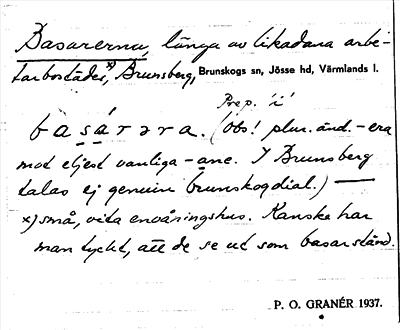 Basarerna, länga av likadana arbe-
tarbostäder x), Brunsberg, Brunskogs sn, Jösse hd, Värmlands l.
Prep. 'i'
basárəra. (Obs! plur. änd. -era
mot eljest vanliga -ane. I Brunsberg
talas ej genuin brunskogdial.) —
x) små, vita envåningshus. Kanske har
man tyckt, att de se ut som basarstånd.
P. O. GRANÉR 1937.